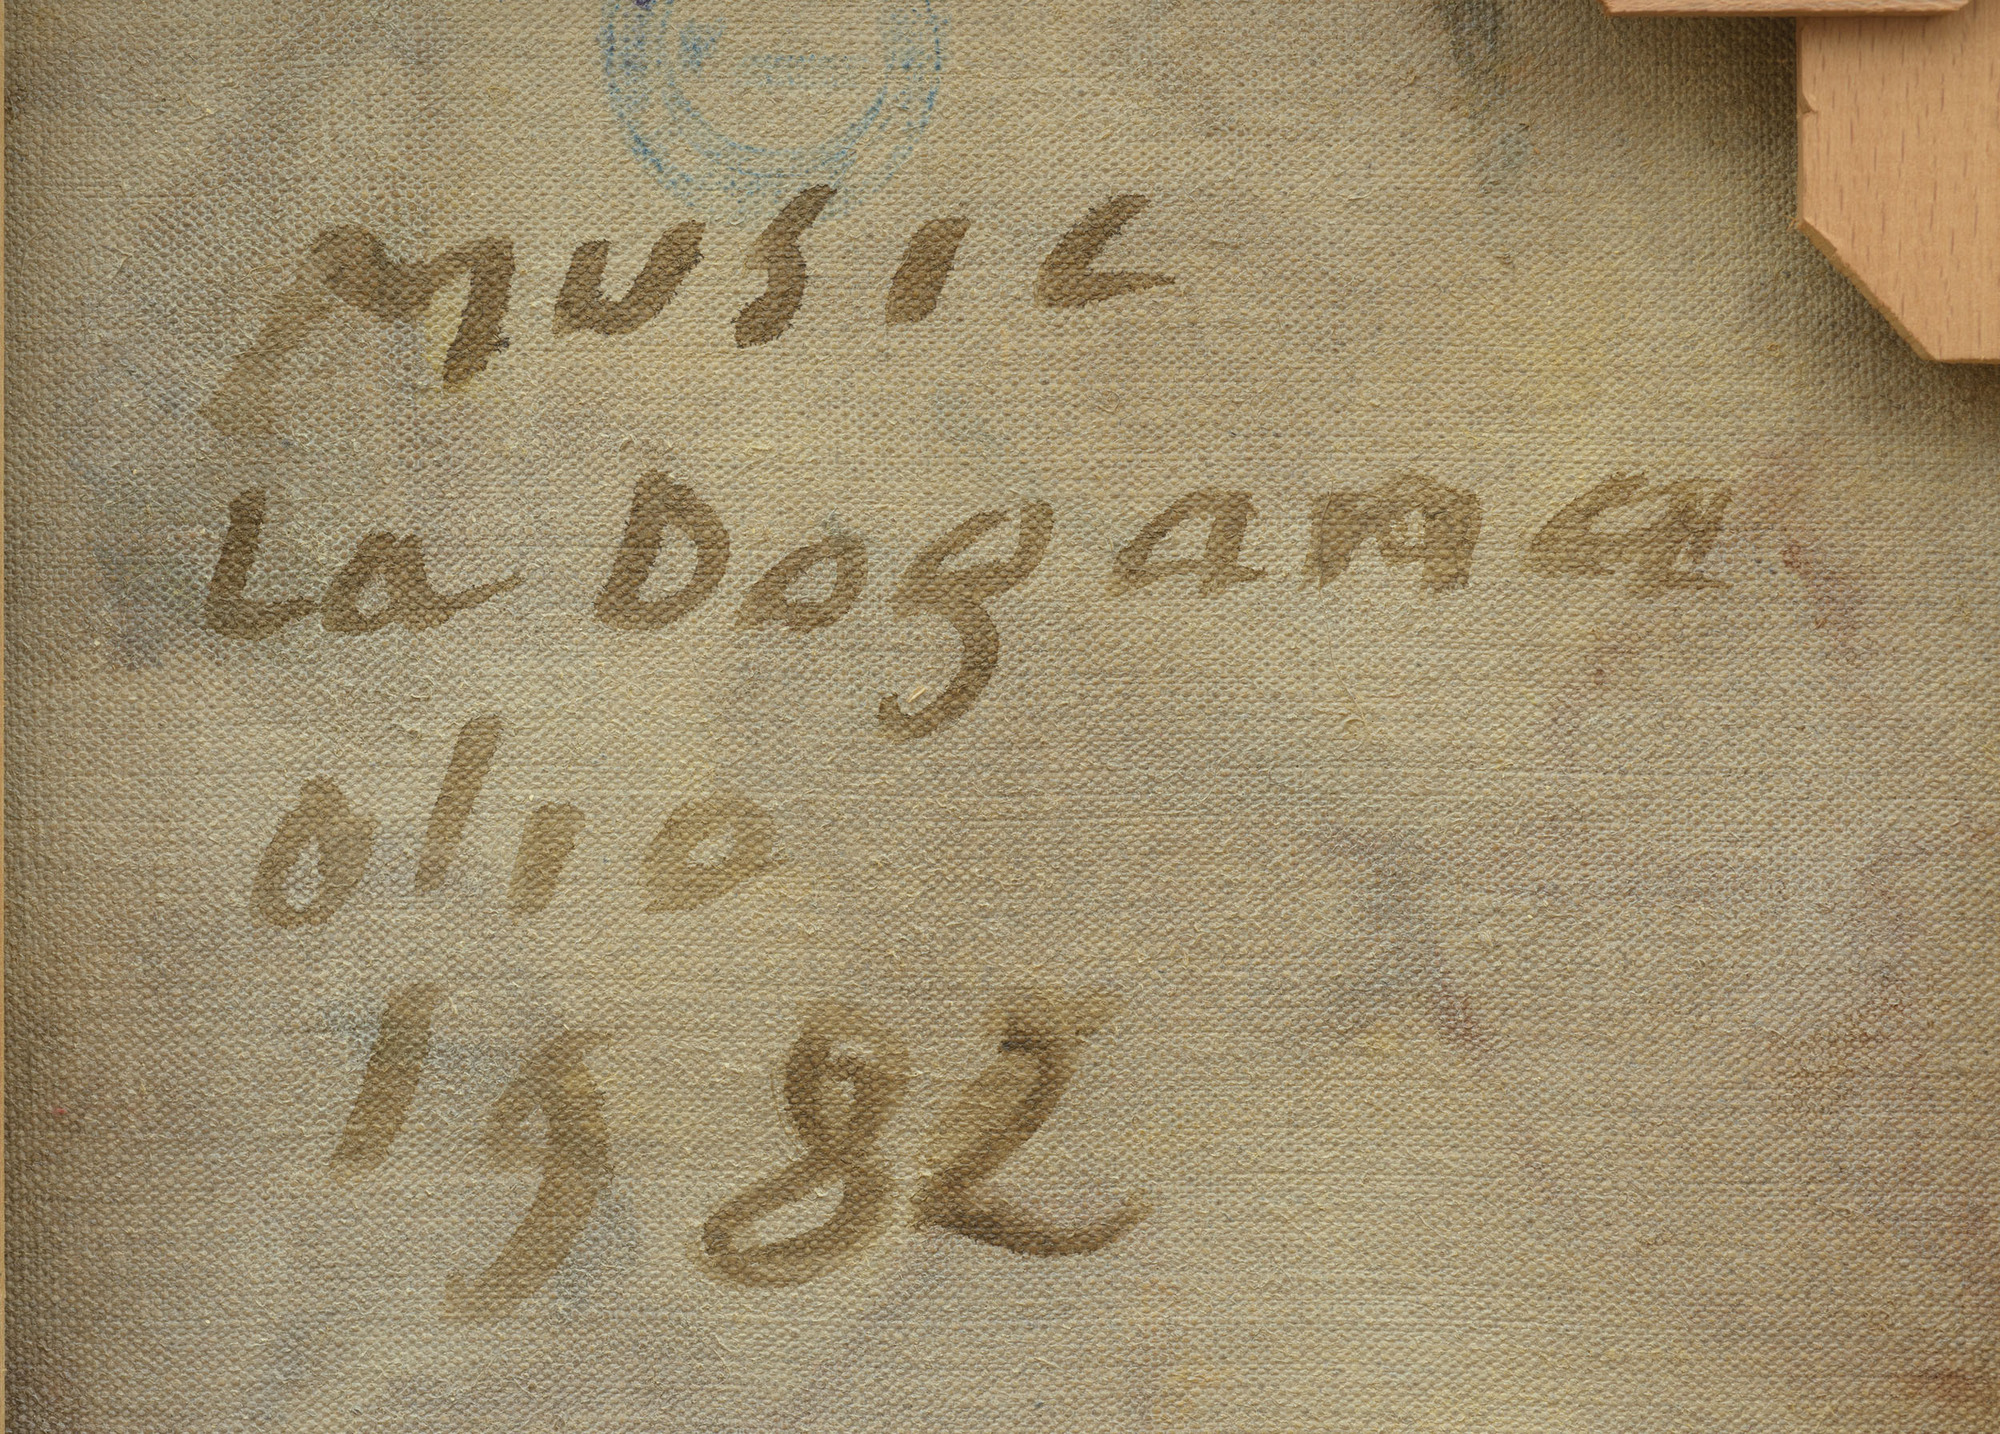 MUSIC
La Dogana
olio
1982